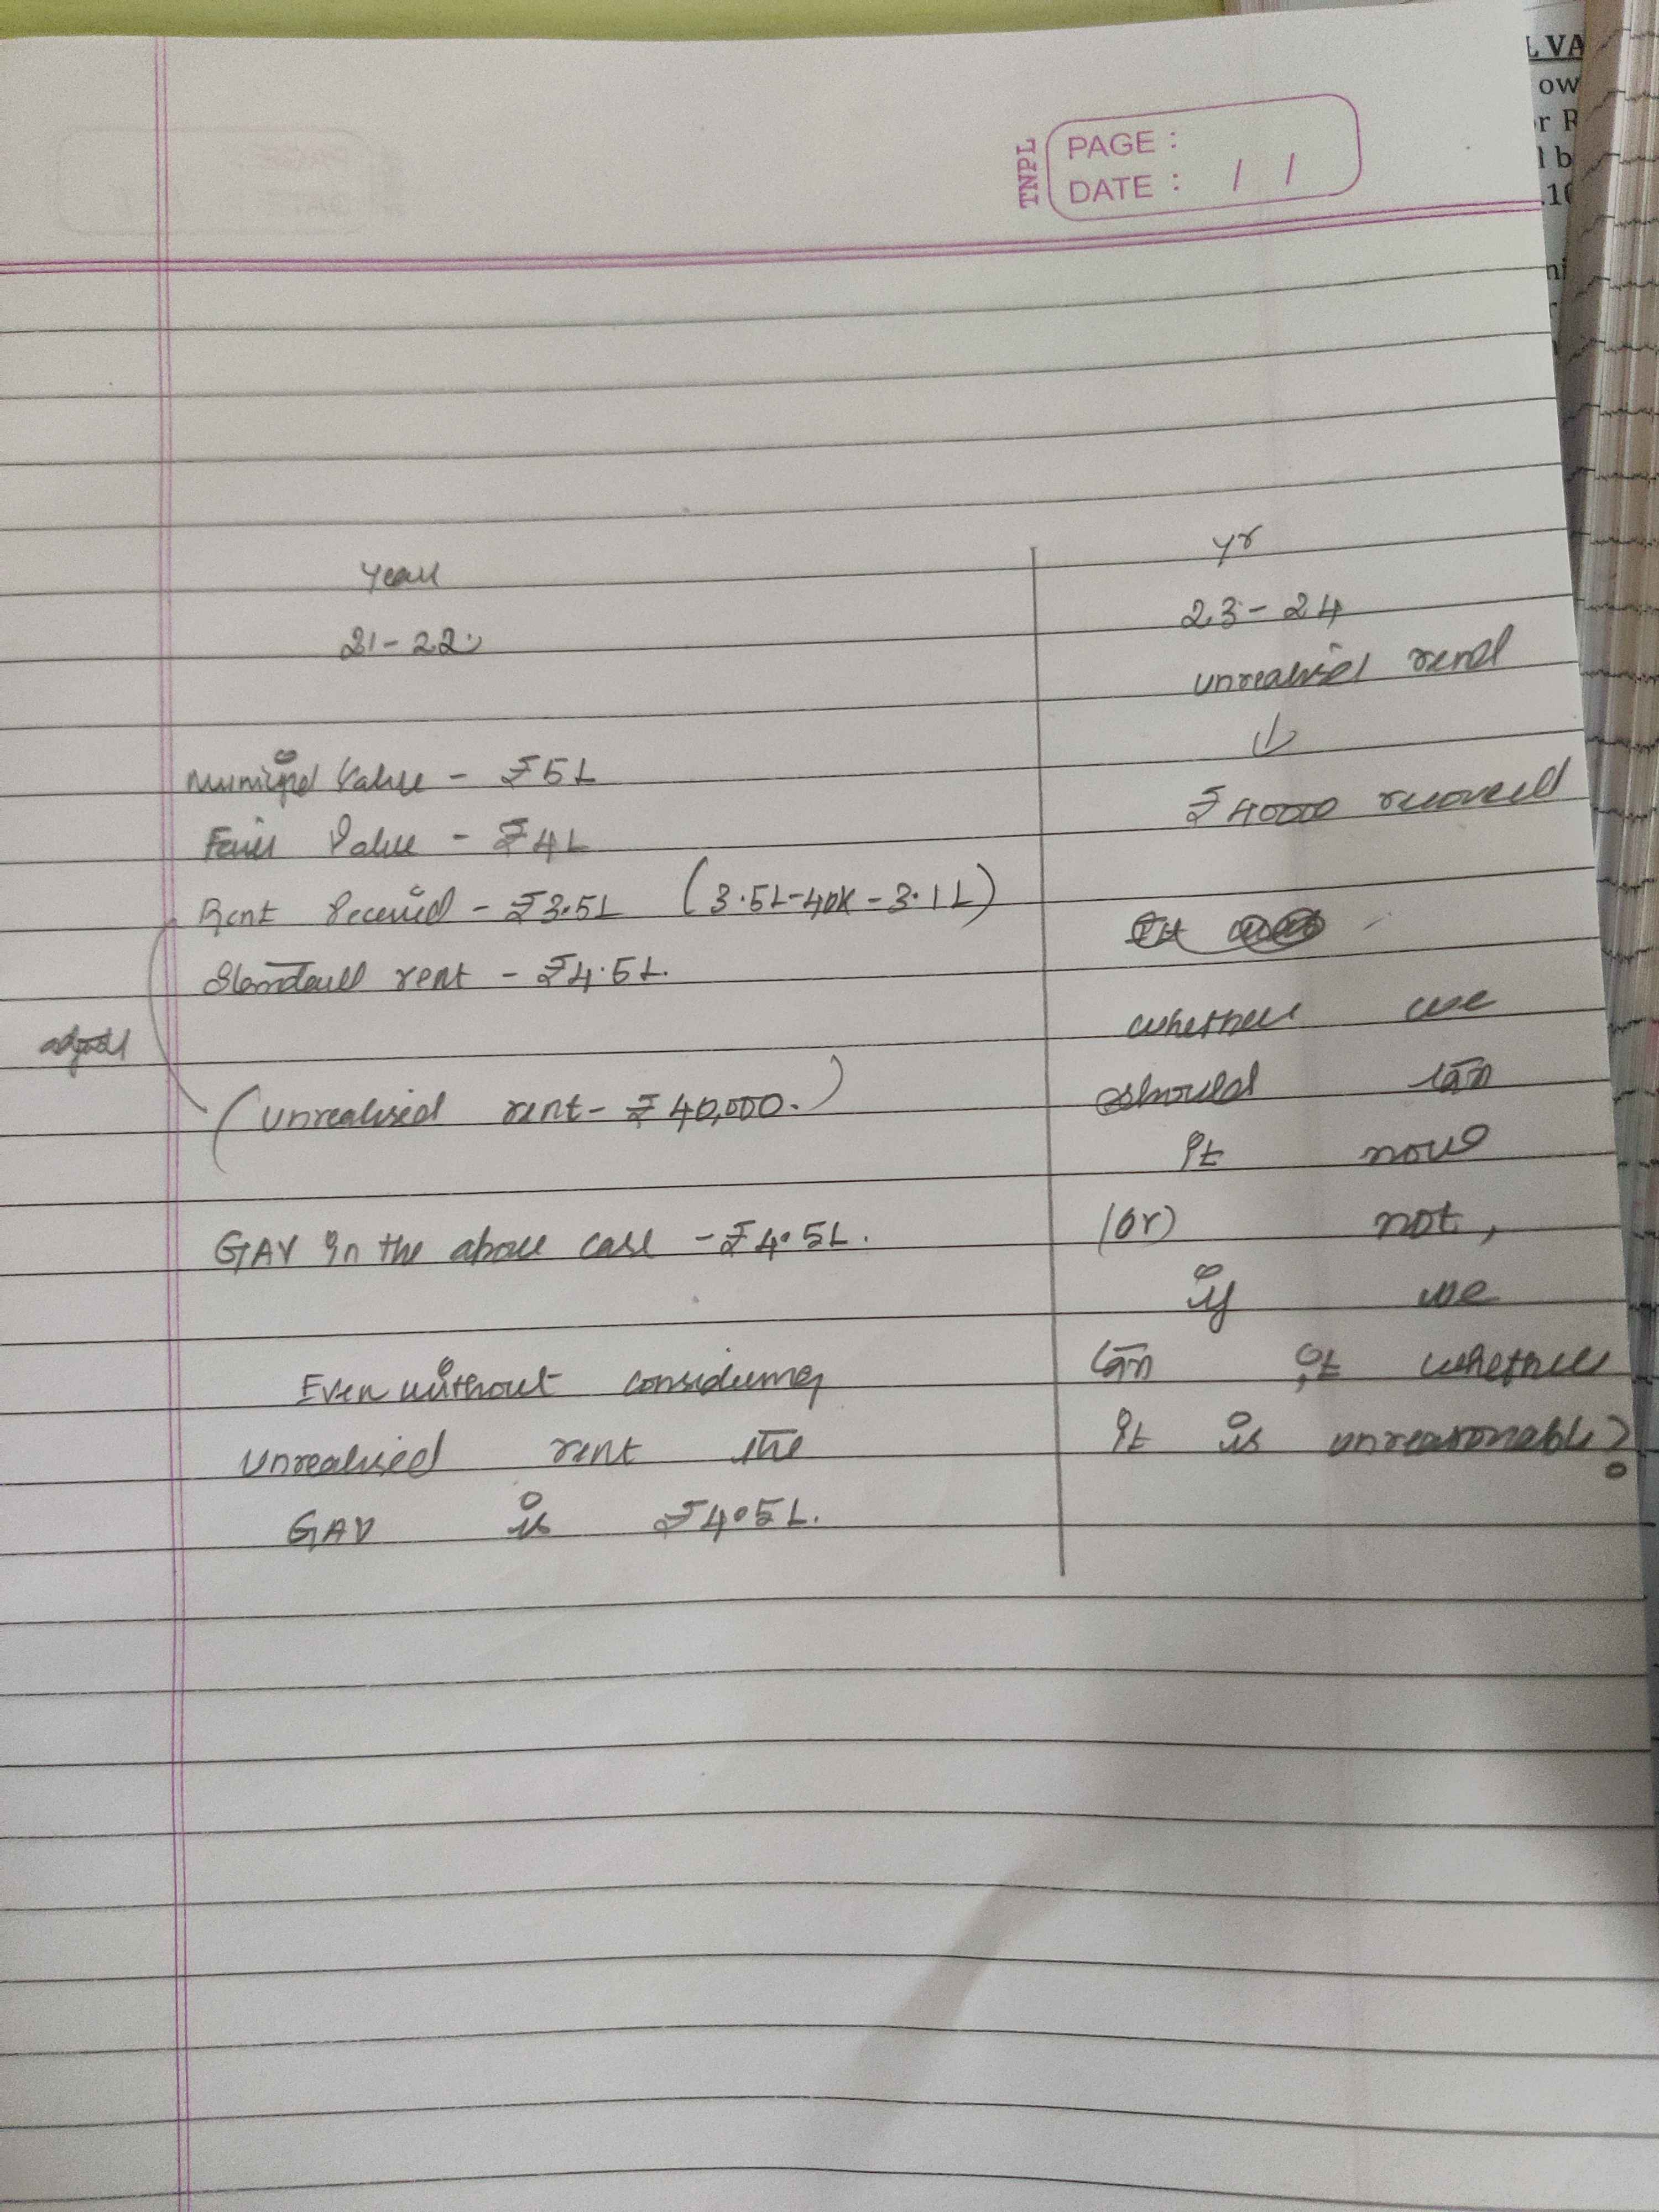 TNPL
PAGE :
DATE : / /
L VA
ow
or R
l b
.10
Year
21-22
Municipal Value - ₹5L
Fair Value - ₹4L
Rent Received - ₹3.5L (3.5L-40K-3.1L)
Standard rent - ₹4.5L.
(unrealised rent - ₹40,000.)
GAV in the above case - ₹4.5L.
Even without considering
unrealised rent the
GAV is ₹4.5L.
yr
23-24
unrealised rent
↓
₹40000 recovered
whether we
should tax
it now
(or) not,
if we
tax it whether
it is unreasonable?